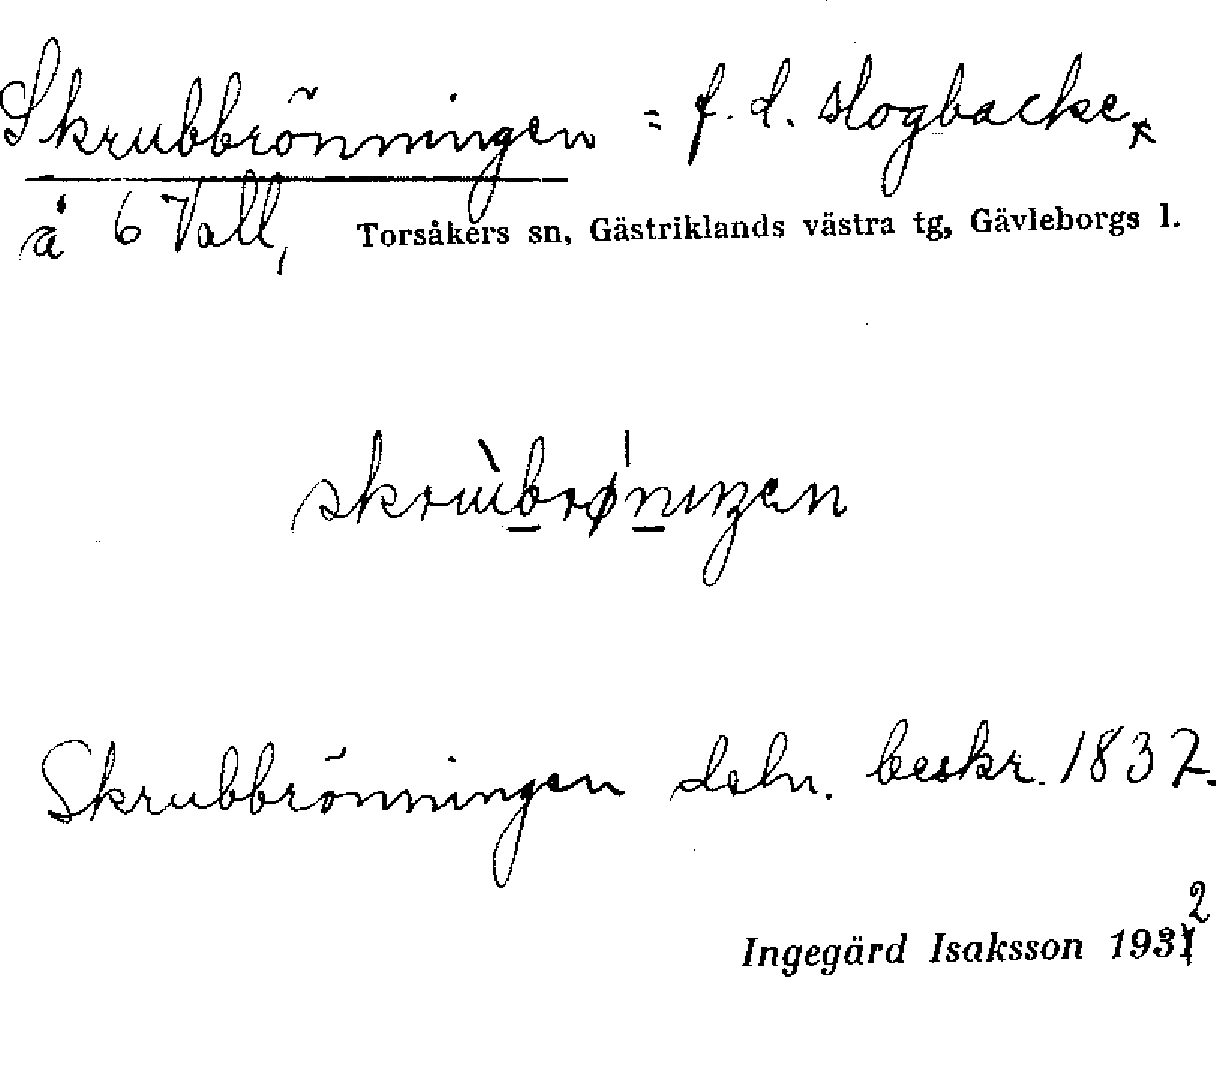 Skrubbrönningen = f. d. slogbacke
å 6 Vall, Torsåkers sn, Gästriklands västra tg, Gävleborgs l.
Skrubbrönningen deln. beskr. 1837.
2
Ingegärd Isaksson 1931